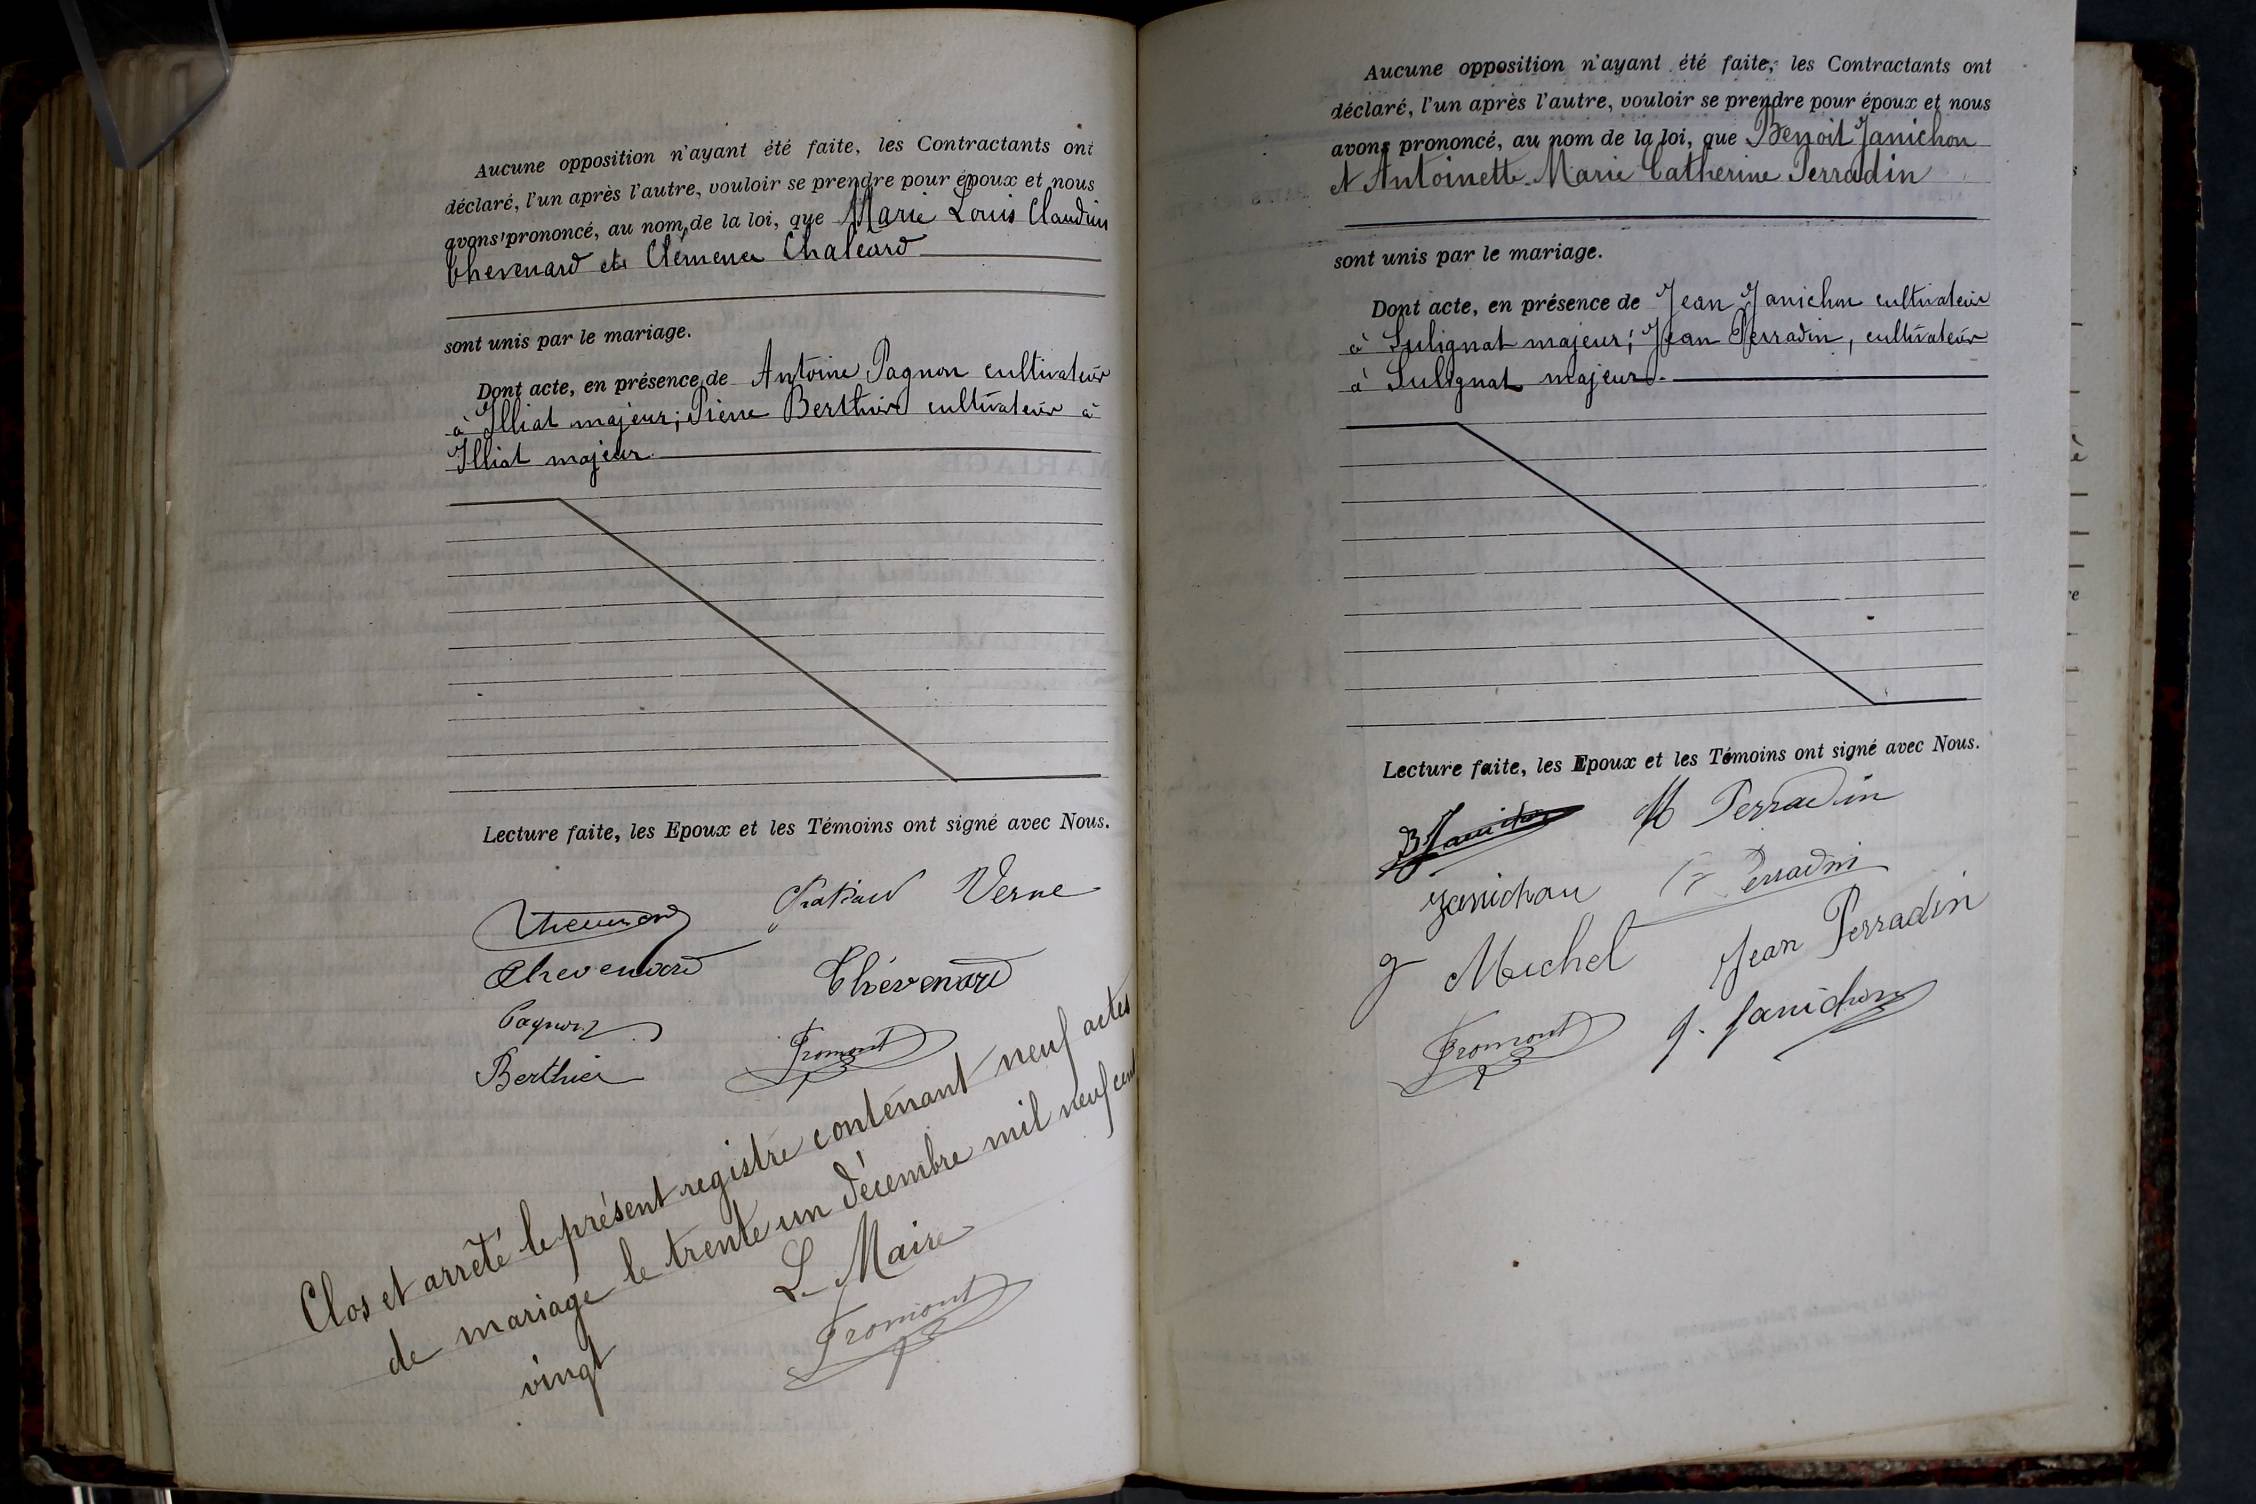 Aucune opposition n'ayant été faite, les Contractants ont
déclaré, l'un après l'autre, vouloir se prendre pour époux et nous
avons prononcé, au nom de la loi, que Marie Louis Claudius
Thevenard et Clémence Chaleard
sont unis par le mariage.
Dont acte, en présence de Antoine Pagnon cultivateur
à Illiat majeur; Pierre Berthier cultivateur à
Illiat majeur.
Lecture faite, les Epoux et les Témoins ont signé avec Nous.
Verne
Thevenard
Chevenard
Thévenard
Pagnon
Fromont
Berthier
Clos et arrêté le présent registre contenant neuf actes
de mariage le trente un décembre mil neuf cent
vingt
Le Maire
Fromont
Aucune opposition n'ayant été faite, les Contractants ont
déclaré, l'un après l'autre, vouloir se prendre pour époux et nous
avons prononcé, au nom de la loi, que Benoit Janichon
et Antoinette Marie Catherine Perradin
sont unis par le mariage.
Dont acte, en présence de Jean Janichon cultivateur
à Sulignat majeur; Jean Perradin, cultivateur
à Sulignat majeur.
Lecture faite, les Epoux et les Témoins ont signé avec Nous.
B Janichon M Perradin
Janichon Perradin
g Michel Jean Perradin
Fromont J. Janichon